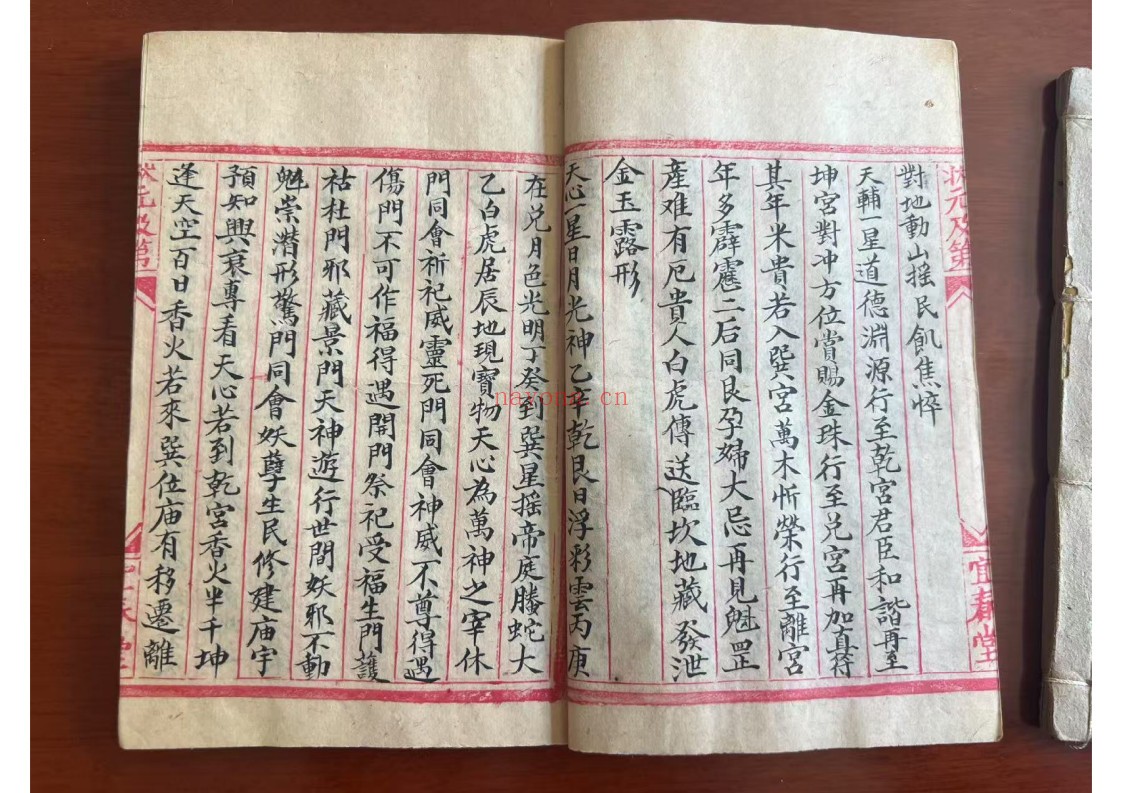 狀元及第
宜稼堂
對地動山摇民飢焦悴
天輔一星道德淵源行至乾宮君臣和諧再至
坤宮對冲方位賞賜金珠行至兑宮再加直符
其年米貴若入巽宮萬木忻榮行至離宮
年多霹靂二后同艮孕婦大忌再見魁罡
産难有厄貴人白虎傳送臨坎地藏發泄
金玉露形
天心一星日月光神乙辛乾艮日浮彩雲丙庚
在兑月色光明丁癸到巽星摇帝庭螣蛇大
乙白虎居辰地現寶物天心為萬神之宰休
門同會祈祀威靈死門同會神威不尊得遇
傷門不可作福得遇開門祭祀受福生門護
祜杜門邪藏景門天神遊行世間妖邪不動
魁崇潜形驚門同會妖孽生民修建庙宇
預知興衰專看天心若到乾宮香火半千坤
逢天空百日香火若來巽位庙有移遷離
狀元及第
nayona.cn